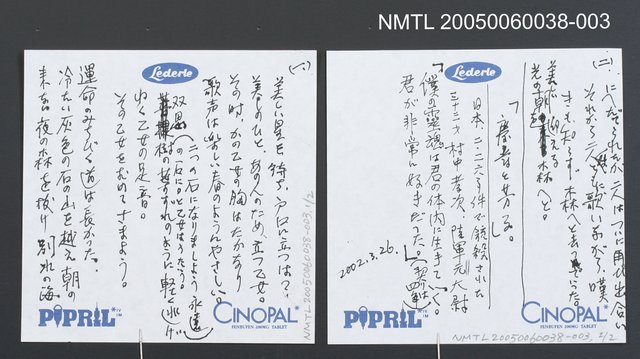 NMTL 20050060038-003
(一)
Lederle
美しい星を待ち、戸口に立つ
美のひと、あの人のため、立つ乙女。
その時、かの乙女の胸はたかなり
歌声は楽しい春のようにやさしい。
双思
(二つの石になりましょう永遠
への石に。)と乙女はうたう。
葉ずれのように軽く逃げ
ゆく乙女の足音。
その乙女を求めてさまよう。
運命のみちびく道は長かった。
冷たい灰色の石の山を越え 朝の
来ない夜の森を抜け 別れの海
PIPRIL
CINOPAL
FENBUFEN 200MG TABLET
NMTL20050060038-003, 1/2
(二)
Lederle
にへだてられた二人はついに再び出会い
それから二人は共に歌いながら、嘆
きも知らず 森へと去っていった。
美が迎える
光の朝を 森へと。
日本、二二六事件で銃殺された
三十三才 村中孝次、陸軍元大尉
「僕の霊魂は君の体内に生きてゆく。
君が非常に好きだった。」
2002.3.26.
PIPRIL
CINOPAL
FENBUFEN 200MG TABLET
NMTL20050060038-003, 2/2